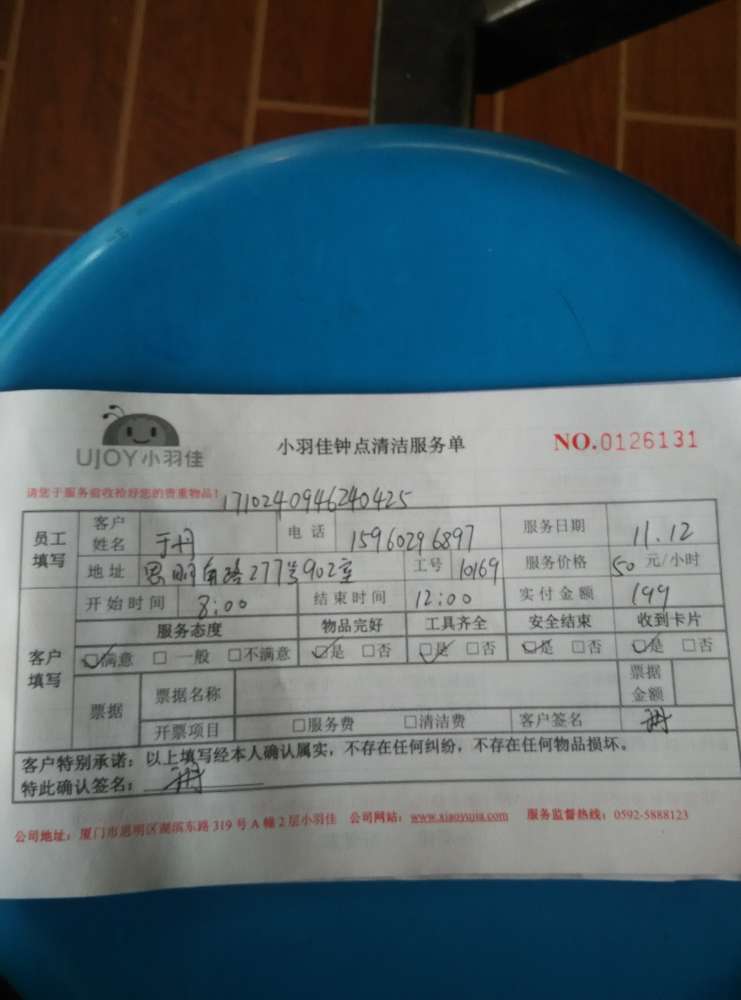 UJOY小羽佳
小羽佳钟点清洁服务单
NO.0126131
请您于服务验收捡好您的贵重物品！
1710240946240425
员工填写 客户姓名 于丹 电话 15960296897 服务日期 11.12
地址 思明南路277号902室 工号 10169 服务价格 50 元/小时
客户填写 开始时间 8:00 结束时间 12:00 实付金额 199
服务态度 物品完好 工具齐全 安全结束 收到卡片
☑满意 □一般 □不满意 ☑是 □否 ☑是 □否 ☑是 □否 ☑是 □否
票据 票据名称 票据金额
开票项目 □服务费 □清洁费 客户签名
客户特别承诺：以上填写经本人确认属实，不存在任何纠纷，不存在任何物品损坏。
特此确认签名：
公司地址：厦门市思明区湖滨东路 319 号 A 幢 2 层小羽佳 公司网站：www.xiaoyujia.com 服务监督热线：0592-5888123